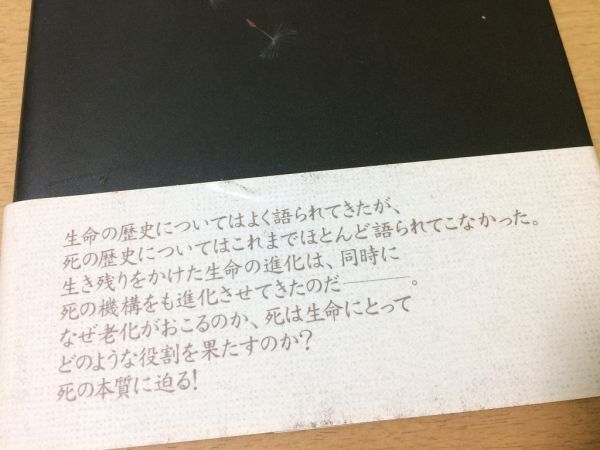 生命の歴史についてはよく語られてきたが、
死の歴史についてはこれまでほとんど語られてこなかった。
生き残りをかけた生命の進化は、同時に
死の機構をも進化させてきたのだ――。
なぜ老化がおこるのか、死は生命にとって
どのような役割を果たすのか?
死の本質に迫る!